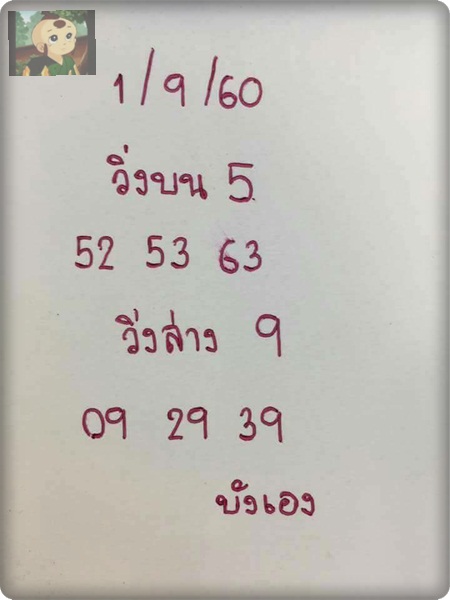 1/9/60
วิ่งบน 5
52 53 63
วิ่งล่าง 9
09 29 39
บังเอง